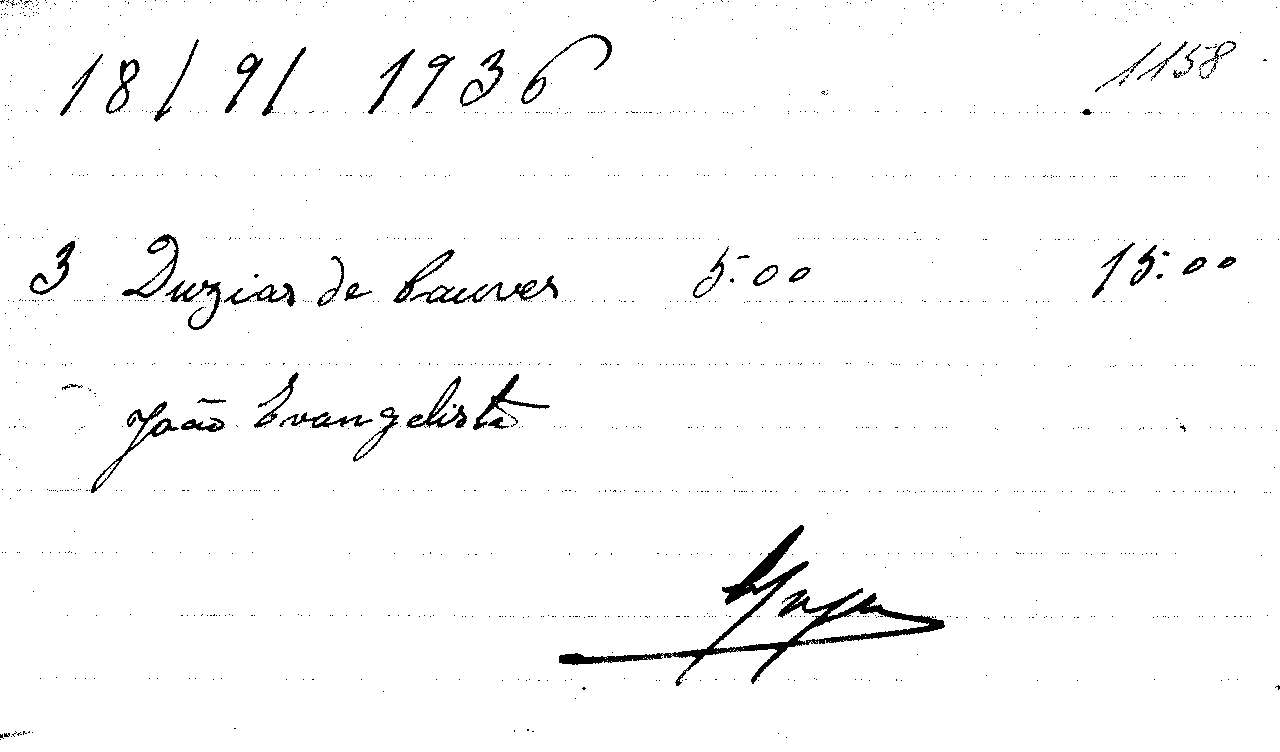 18/9/ 1936 1158
3 Duzias de Couves 5:00 15:00
João Evangelista